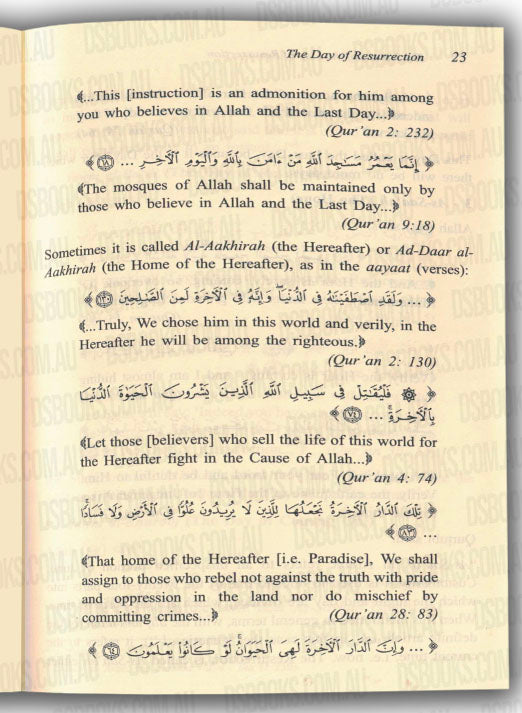 The Day of Resurrection 23
﴾...This [instruction] is an admonition for him among
you who believes in Allah and the Last Day...﴿
(Qur'an 2: 232)
﴿ إِنَّمَا يَعْمُرُ مَسَاجِدَ اللَّهِ مَنْ ءَامَنَ بِاللَّهِ وَالْيَوْمِ الْآخِرِ ... ﴾
﴾The mosques of Allah shall be maintained only by
those who believe in Allah and the Last Day...﴿
(Qur'an 9:18)
Sometimes it is called Al-Aakhirah (the Hereafter) or Ad-Daar al-
Aakhirah (the Home of the Hereafter), as in the aayaat (verses):
﴿ ... وَلَقَدِ اصْطَفَيْنَاهُ فِي الدُّنْيَا وَإِنَّهُ فِي الْآخِرَةِ لَمِنَ الصَّالِحِينَ ١٣٠ ﴾
﴾...Truly, We chose him in this world and verily, in the
Hereafter he will be among the righteous.﴿
(Qur'an 2: 130)
﴿ ۞ فَلْيُقَاتِلْ فِي سَبِيلِ اللَّهِ الَّذِينَ يَشْرُونَ الْحَيَوٰةَ الدُّنْيَا
بِالْآخِرَةِ ... ٧٤ ﴾
﴾Let those [believers] who sell the life of this world for
the Hereafter fight in the Cause of Allah...﴿
(Qur'an 4: 74)
﴿ تِلْكَ الدَّارُ الْآخِرَةُ نَجْعَلُهَا لِلَّذِينَ لَا يُرِيدُونَ عُلُوًّا فِي الْأَرْضِ وَلَا فَسَادًا
... ٨٣ ﴾
﴾That home of the Hereafter [i.e. Paradise], We shall
assign to those who rebel not against the truth with pride
and oppression in the land nor do mischief by
committing crimes...﴿ (Qur'an 28: 83)
﴿ ... وَإِنَّ الدَّارَ الْآخِرَةَ لَهِيَ الْحَيَوَانُ لَوْ كَانُوا يَعْلَمُونَ ٦٤ ﴾
DSBOOKS.COM.AU